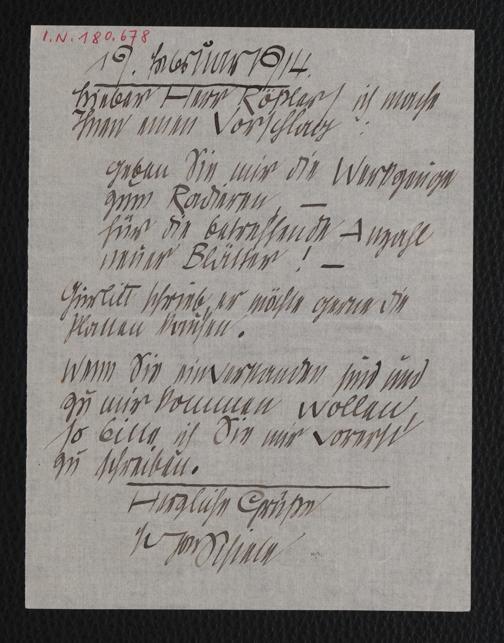 I.N. 180.678
19. Februar 1914.
Lieber Herr Rößler, ich mache
Ihnen einen Vorschlag :
geben Sie mir die Werkzeuge
zum Radieren, —
für die betreffende Anzahl
neuer Blätter ! —
Gurlitt schrieb, er möchte gerne die
Platten kaufen.
Wenn Sie einverstanden sind und
zu mir kommen wollen,
so bitte ich Sie mir vorerst
zu schreiben.
Herzliche Grüße
Schiele